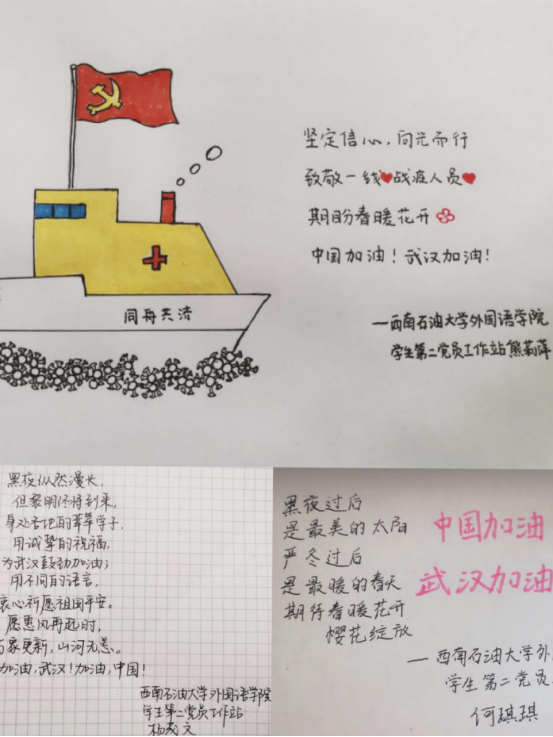 坚定信心，向光而行
致敬一线战疫人员
期盼春暖花开
中国加油！武汉加油！
—西南石油大学外国语学院
学生第二党员工作站熊莉萍
同舟共济
黑夜纵然漫长，
但黎明终将到来，
身处各地的莘莘学子，
用诚挚的祝福，
为武汉鼓劲加油；
用不同的语言，
衷心祈愿祖国平安。
愿惠风再起时，
万家更新，山河无恙。
加油，武汉！加油，中国！
西南石油大学外国语学院
学生第二党员工作站
杨茂文
黑夜过后
是最美的太阳
严冬过后
是最暖的春天
期待春暖花开
樱花绽放
中国加油
武汉加油
—西南石油大学外
学生第二党员
何琪琪